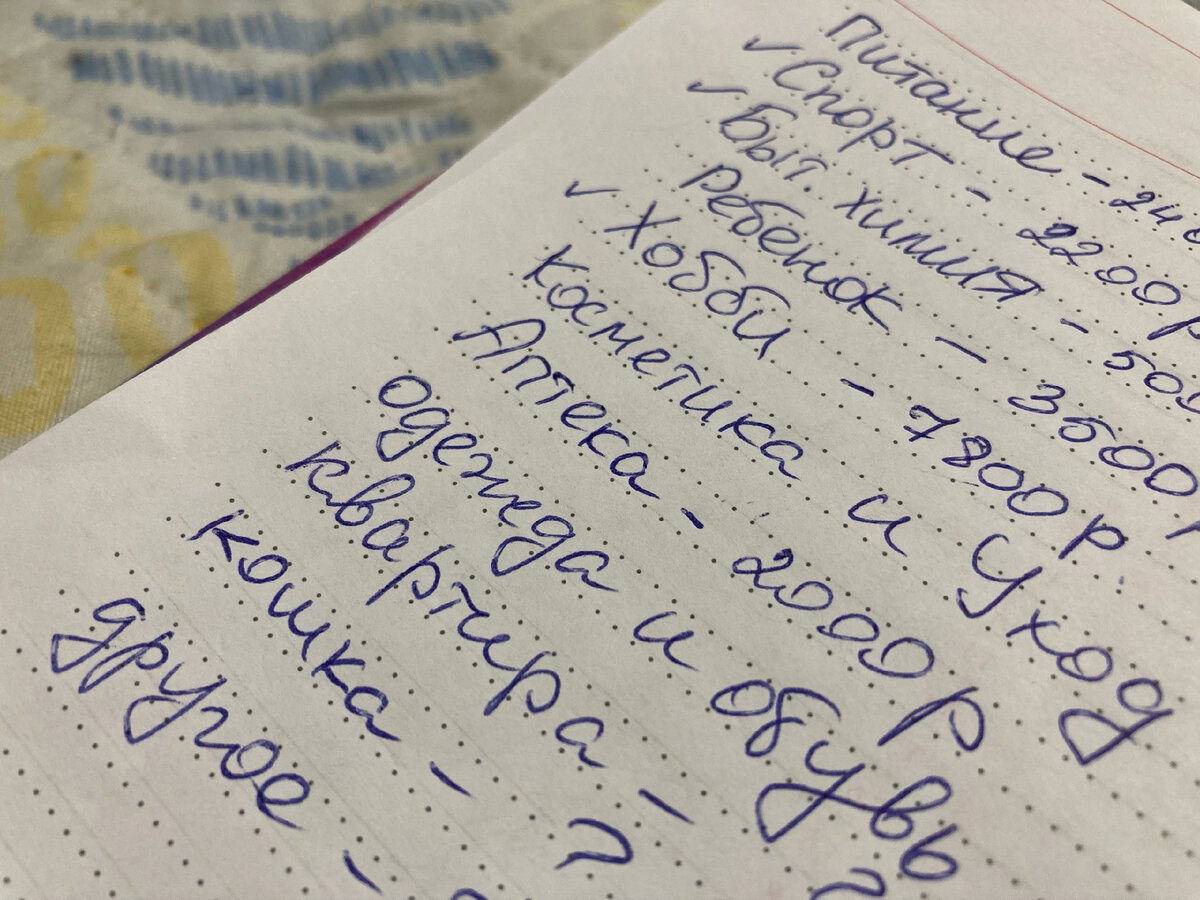 Питание - 240
✓ Спорт - 2200р
✓ Быт. химия - 500
Ребенок - 3500р
✓ Хобби - 7800р
Косметика и Уход
Аптека - 2000р
одежда и обувь
квартира - ?
кошка - ?
другое -